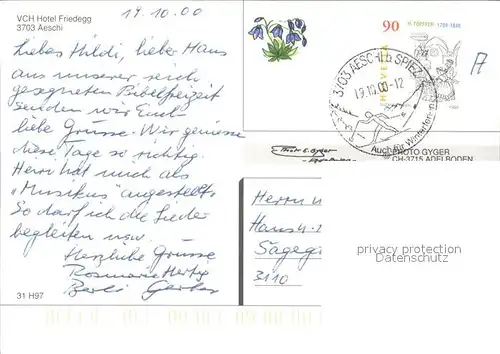 VCH Hotel Friedegg
3703 Aeschi
17.10.00
Liebes Hildi, lieber Hans
aus unserer reich
gesegneten Bibelfreizeit
senden wir Euch
liebe Grüsse. Wir geniessen
diese Tage so richtig.
Herr hat mich als
"Musikus" angestellt
So darf ich die Lieder
begleiten usw.
Herzliche Grüsse
Rosmarie Hertig
Berti Gerber
31 H97
90
HELVETIA
R. TÖPFFER 1799-1846
3703 AESCHI b. SPIEZ
19.10.00-12
Auch für Winterferien
A
PHOTO GYGER
CH-3715 ADELBODEN
Herrn u
Hans
Sägeg
3110
privacy protection
Datenschutz